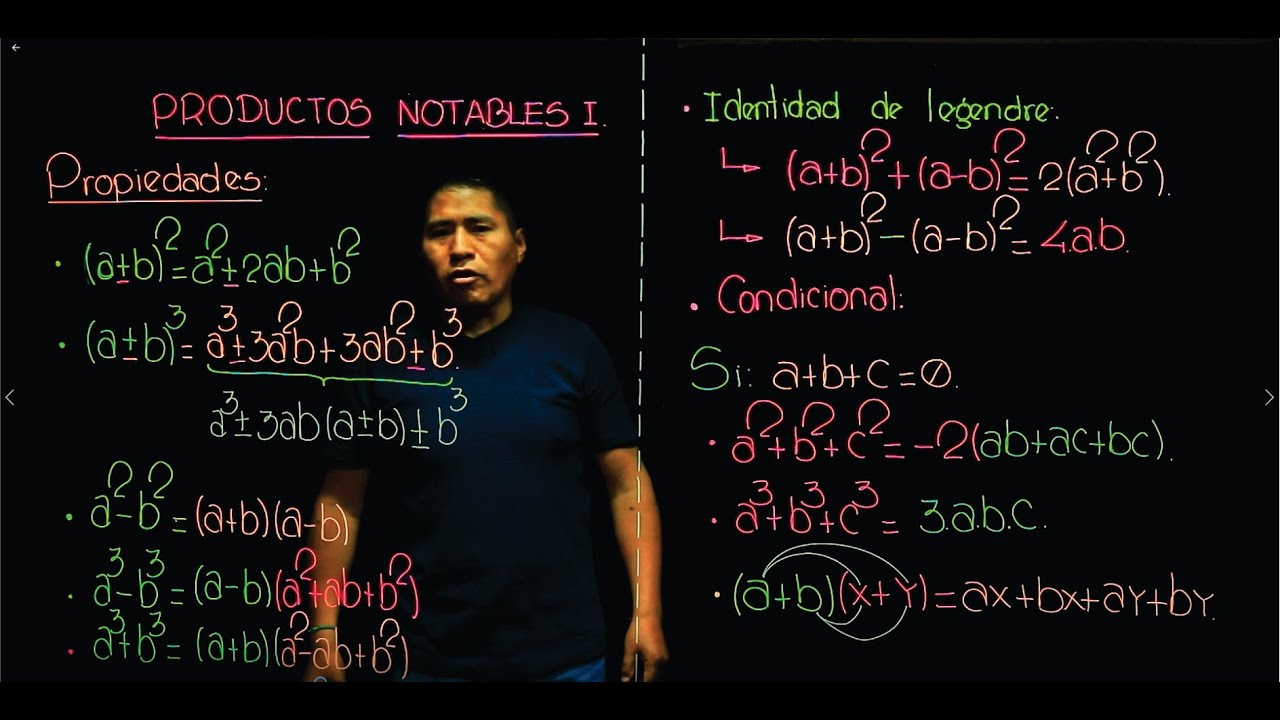 PRODUCTOS NOTABLES I.
Propiedades:
• (a±b)²=a²±2ab+b²
• (a±b)³=a³±3a²b+3ab²±b³.
a³±3ab(a±b)±b³
• a²-b²=(a+b)(a-b)
• a³-b³=(a-b)(a²+ab+b²)
• a³+b³=(a+b)(a²-ab+b²)
• Identidad de legendre:
↳ (a+b)²+(a-b)²=2(a²+b²).
↳ (a+b)²-(a-b)²=4.a.b.
• Condicional:
Si: a+b+c=0.
• a²+b²+c²=-2(ab+ac+bc).
• a³+b³+c³=3.a.b.c.
• (a+b)(x+y)=ax+bx+ay+by.